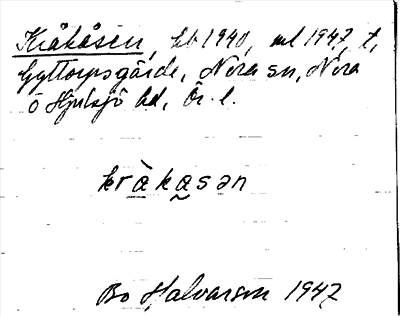 Kråkåsen, hb 1940, ml 1947, t.
Gyttorpsgärde, Nora sn, Nora
o Hjulsjö bd, Ör. l.
kràkasən
Bo Halvarson 1947